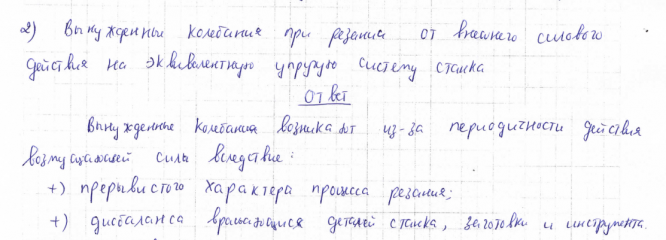 2) Вынужденные колебания при резании от внешнего силового
действия на эквивалентную упругую систему станка
Ответ
Вынужденные колебания возникают из-за периодичности действия
возмущающей силы вследствие:
+) прерывистого характера процесса резания;
+) дисбаланса вращающихся деталей станка, заготовки и инструмента.